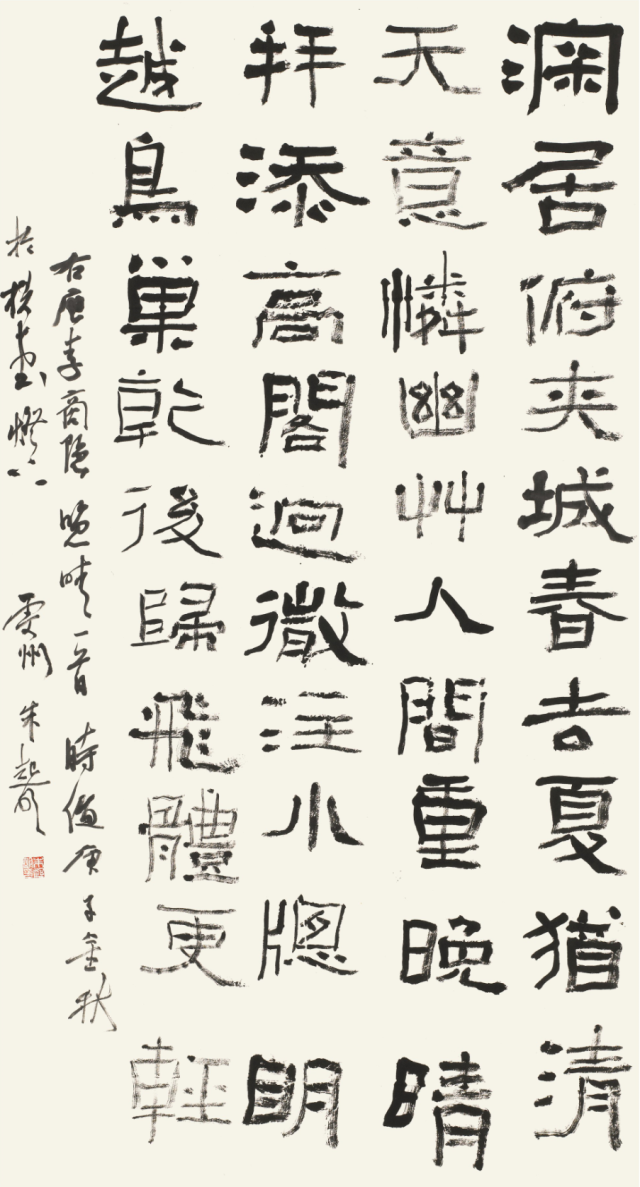 深居俯夹城春去夏猶清
天意憐幽艸人間重晚晴
拜添高閣迥微注小牕眀
越鳥巢乾後歸飛體更輕
右唐李商隐晚晴一首時值庚子金秋
於燈下州朱